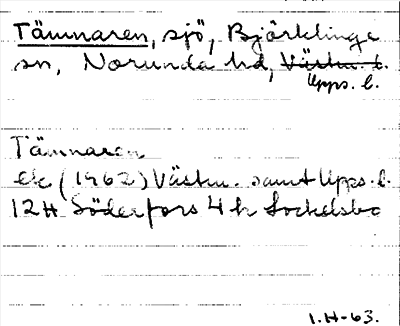 Tämnaren, sjö, Björklinge
sn, Norunda hd, Västm. l.
Upps. l.
Tämnaren
ek (1962) Västm. samt Upps. l.
12H Söderfors 4 h Sockelsbo
1.H-63.